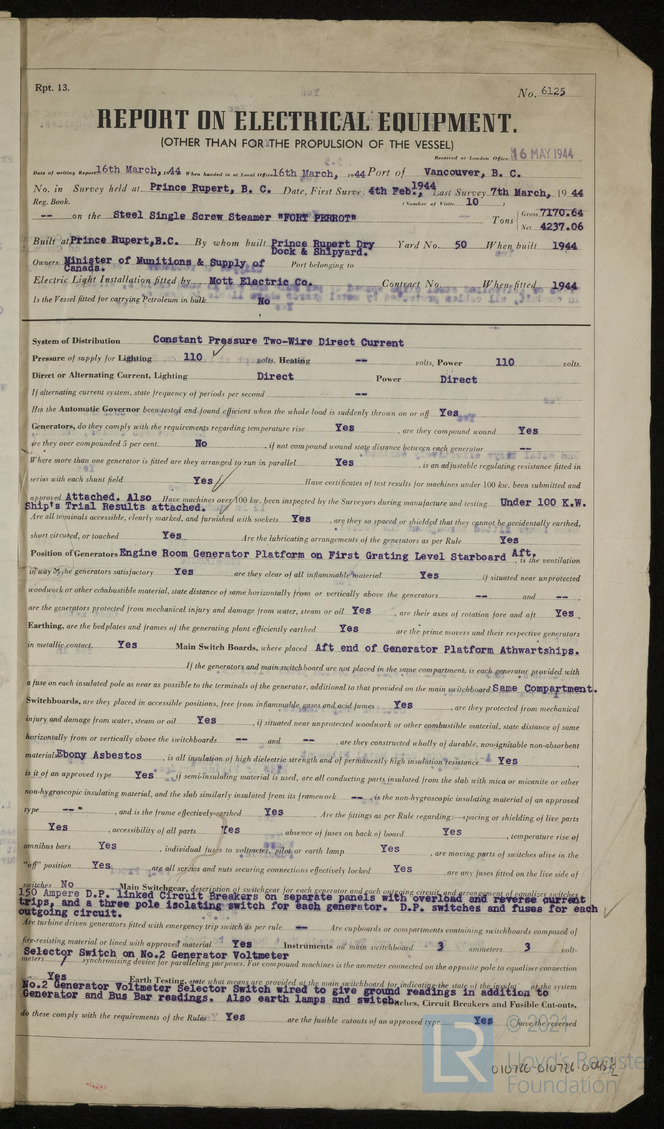 Rpt. 13.
No. 6125
REPORT ON ELECTRICAL EQUIPMENT.
(OTHER THAN FOR THE PROPULSION OF THE VESSEL)
Received at London Office 16 MAY 1944
Date of writing Report 16th March, 1944 When handed in at Local Office 16th March, 1944 Port of Vancouver, B. C.
No. in Survey held at Prince Rupert, B. C. Date, First Survey 4th Feb., 1944 Last Survey 7th March, 1944
Reg. Book. (Number of Visits 10 )
-- on the Steel Single Screw Steamer "FORT PERROT" Tons Gross 7170.64
Net 4237.06
Built at Prince Rupert, B.C. By whom built Prince Rupert Dry Dock & Shipyard. Yard No. 50 When built 1944
Owners Minister of Munitions & Supply of Canada. Port belonging to
Electric Light Installation fitted by Mott Electric Co. Contract No. When fitted 1944
Is the Vessel fitted for carrying Petroleum in bulk No
System of Distribution Constant Pressure Two-Wire Direct Current
Pressure of supply for Lighting 110 volts, Heating -- volts, Power 110 volts.
Direct or Alternating Current, Lighting Direct Power Direct
If alternating current system, state frequency of periods per second --
Has the Automatic Governor been tested and found efficient when the whole load is suddenly thrown on or off Yes
Generators, do they comply with the requirements regarding temperature rise Yes , are they compound wound Yes
are they over compounded 5 per cent. No , if not compound wound state distance between each generator --
Where more than one generator is fitted are they arranged to run in parallel Yes , is an adjustable regulating resistance fitted in
series with each shunt field Yes Have certificates of test results for machines under 100 kw. been submitted and
approved Attached. Also Ship's Trial Results attached. Have machines over 100 kw. been inspected by the Surveyors during manufacture and testing Under 100 K.W.
Are all terminals accessible, clearly marked, and furnished with sockets Yes , are they so spaced or shielded that they cannot be accidentally earthed,
short circuited, or touched Yes Are the lubricating arrangements of the generators as per Rule Yes
Position of Generators Engine Room Generator Platform on First Grating Level Starboard Aft. , is the ventilation
in way of the generators satisfactory Yes are they clear of all inflammable material Yes if situated near unprotected
woodwork or other combustible material, state distance of same horizontally from or vertically above the generators -- and -- ,
are the generators protected from mechanical injury and damage from water, steam or oil Yes , are their axes of rotation fore and aft Yes
Earthing, are the bedplates and frames of the generating plant efficiently earthed Yes are the prime movers and their respective generators
in metallic contact. Yes Main Switch Boards, where placed Aft end of Generator Platform Athwartships.
If the generators and main switchboard are not placed in the same compartment, is each generator provided with
a fuse on each insulated pole as near as possible to the terminals of the generator, additional to that provided on the main switchboard Same Compartment.
Switchboards, are they placed in accessible positions, free from inflammable gases and acid fumes Yes , are they protected from mechanical
injury and damage from water, steam or oil Yes , if situated near unprotected woodwork or other combustible material, state distance of same
horizontally from or vertically above the switchboards -- and -- , are they constructed wholly of durable, non-ignitable non-absorbent
materials Ebony Asbestos , is all insulation of high dielectric strength and of permanently high insulation resistance Yes
is it of an approved type Yes if semi-insulating material is used, are all conducting parts insulated from the slab with mica or micanite or other
non-hygroscopic insulating material, and the slab similarly insulated from its framework -- , is the non-hygroscopic insulating material of an approved
type -- , and is the frame effectively earthed Yes Are the fittings as per Rule regarding:—spacing or shielding of live parts
Yes , accessibility of all parts Yes , absence of fuses on back of board Yes , temperature rise of
omnibus bars Yes , individual fuses to voltmeter, pilot or earth lamp Yes , are moving parts of switches alive in the
"off" position Yes are all screws and nuts securing connections effectively locked Yes are any fuses fitted on the live side of
switches No Main Switchgear, description of switchgear for each generator and each outgoing circuit, and arrangement of equalizer switches
150 Ampere D.P. linked Circuit Breakers on separate panels with overload and reverse current
trips, and a three pole isolating switch for each generator. D.P. switches and fuses for each
outgoing circuit.
Are turbine driven generators fitted with emergency trip switch as per rule -- Are cupboards or compartments containing switchboards composed of
fire-resisting material or lined with approved material Yes Instruments on main switchboard 3 ammeters 3 volt-
Selector Switch on No.2 Generator Voltmeter
meters synchronising device for paralleling purposes. For compound machines is the ammeter connected on the opposite pole to equaliser connection
Yes Earth Testing, state what means are provided at the main switchboard for indicating the state of the insulation of the system
No.2 Generator Voltmeter Selector Switch wired to give ground readings in addition to
Generator and Bus Bar readings. Also earth lamps and switch. Switches, Circuit Breakers and Fusible Cut-outs,
do these comply with the requirements of the Rules Yes are the fusible cutouts of an approved type Yes have the reversed
© 2021
Lloyd's Register
Foundation
LR